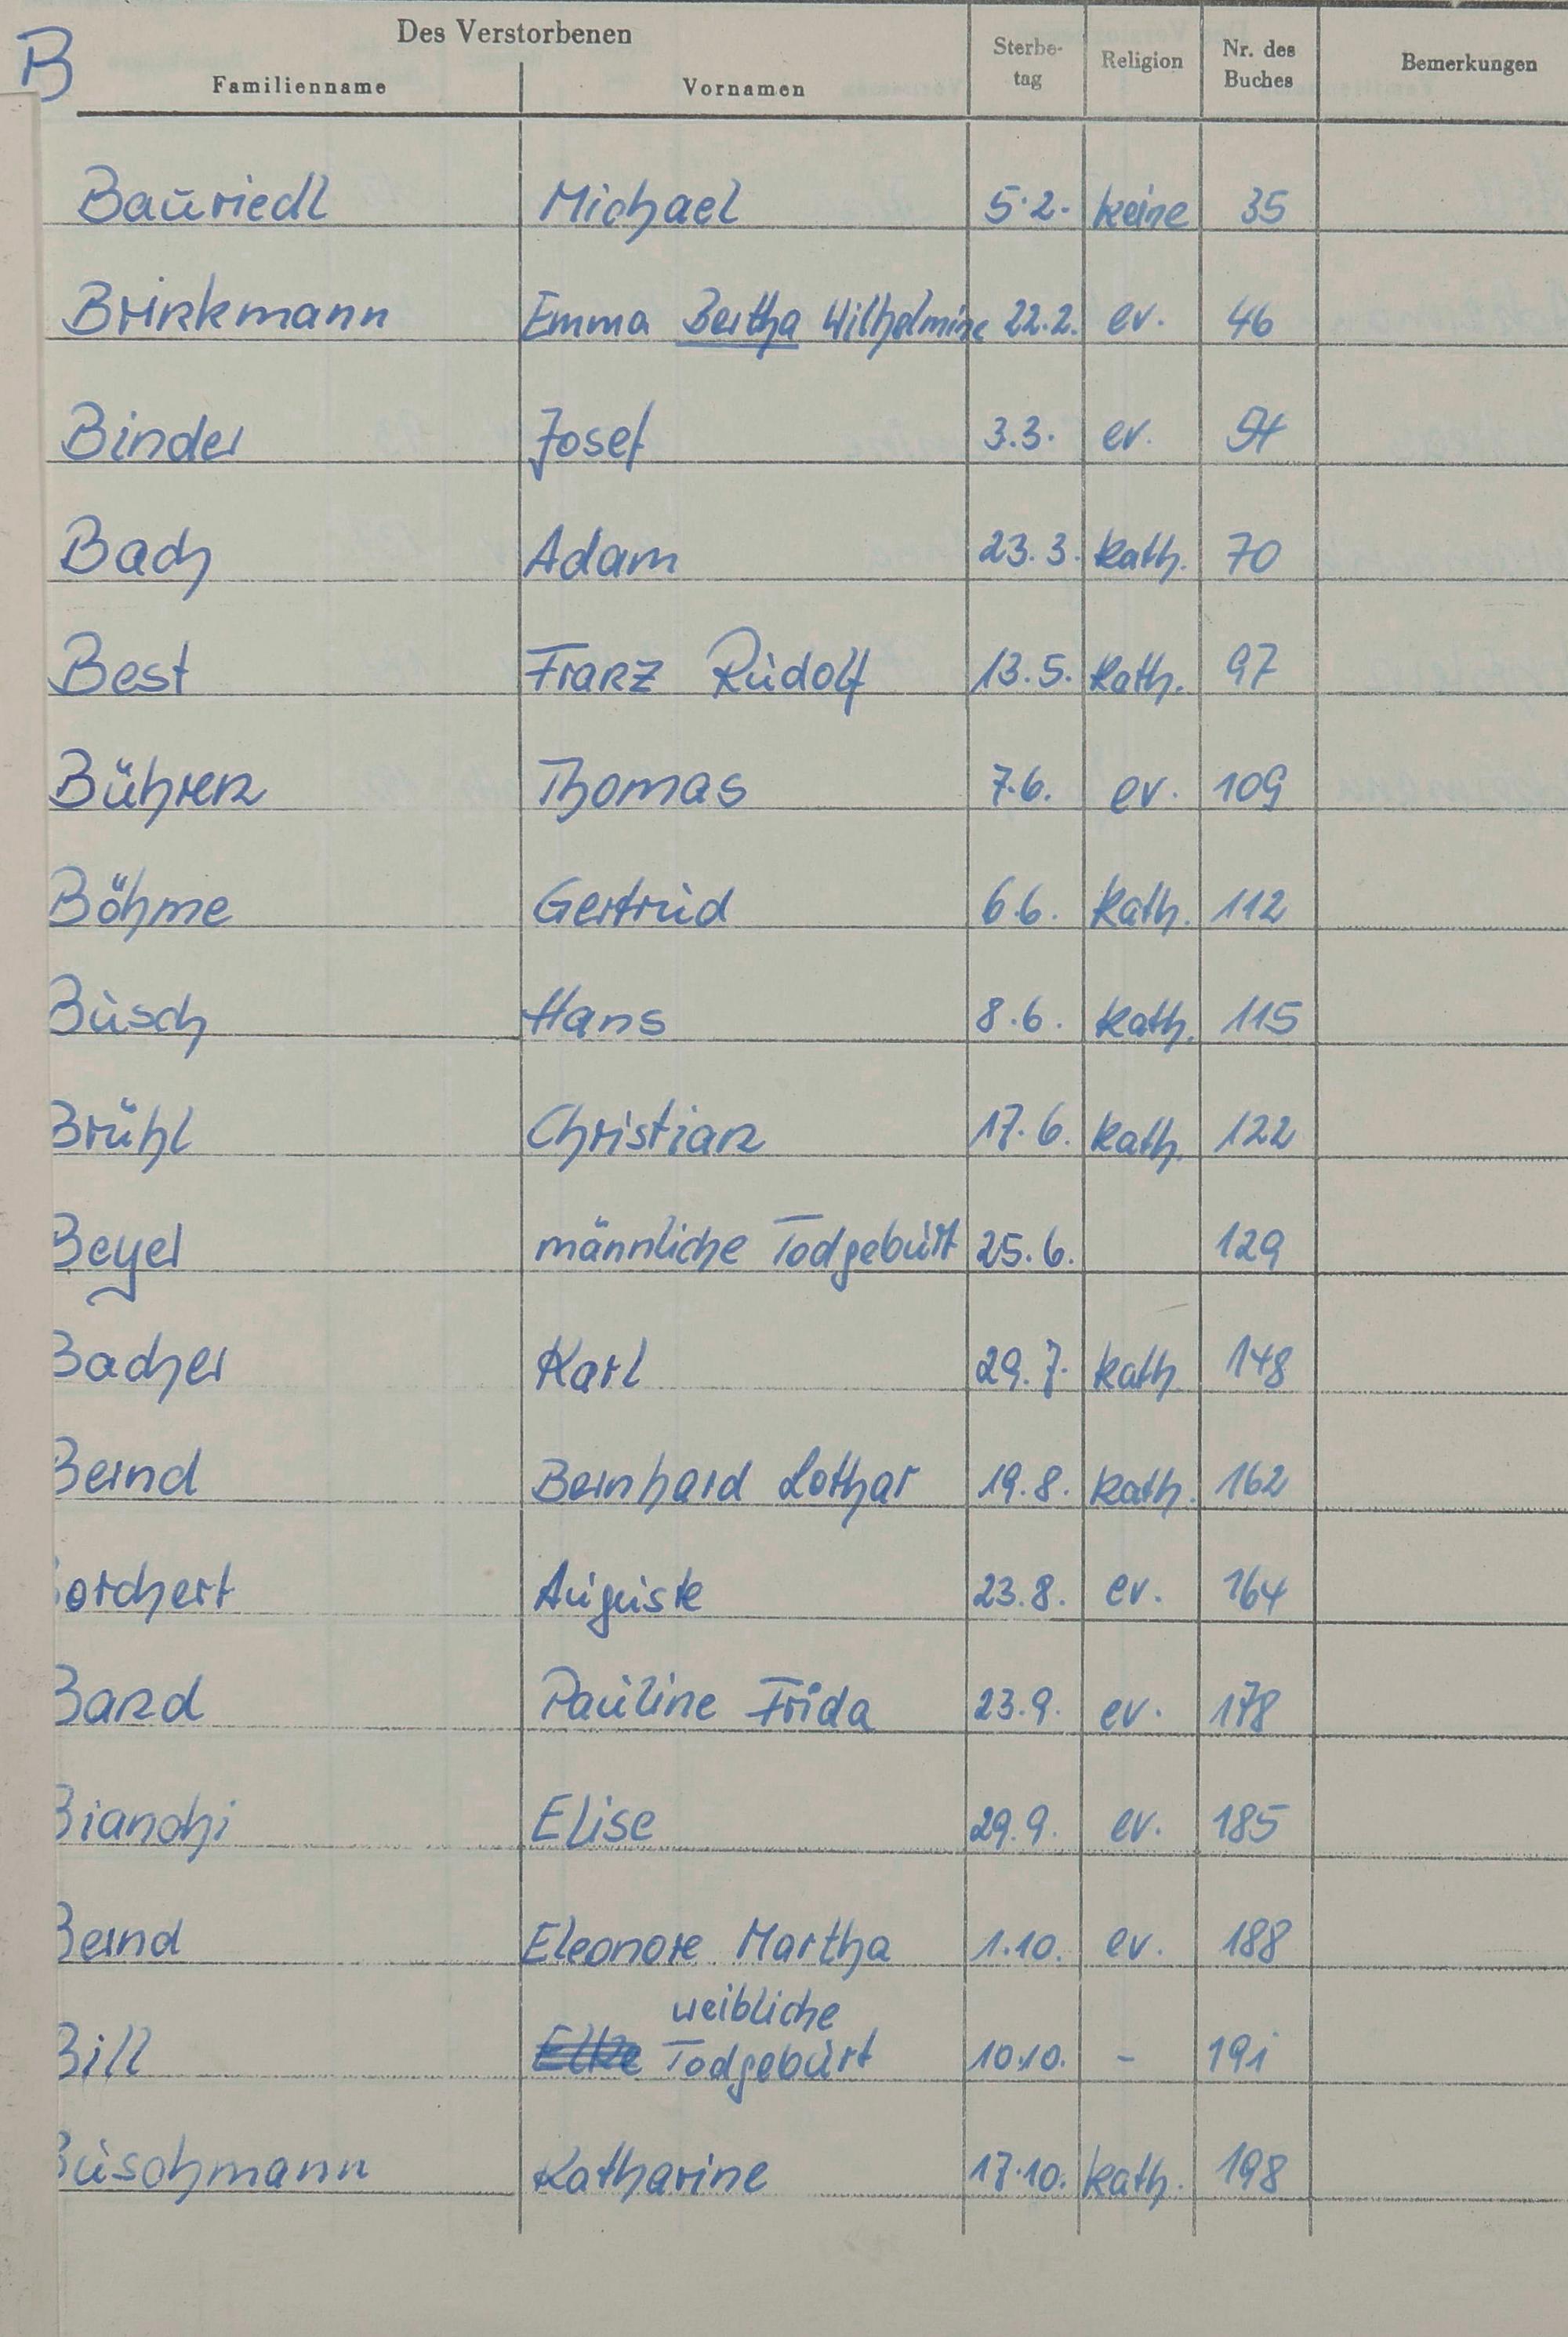 B
Des Verstorbenen
Familienname Vornamen Sterbe-tag Religion Nr. des Buches Bemerkungen
Bauriedl Michael 5.2. keine 35
Brinkmann Emma Bertha Wilhelmine 22.2. ev. 46
Binder Josef 3.3. ev. 54
Bach Adam 23.3. kath. 70
Best Franz Rudolf 13.5. kath. 97
Bühren Thomas 7.6. ev. 109
Böhme Gertrud 6.6. kath. 112
Busch Hans 8.6. kath. 115
Brühl Christian 17.6. kath. 122
Beyel männliche Todgeburt 25.6. 129
Bacher Karl 29.7. kath 148
Bernd Bernhard Lothar 19.8. kath. 162
Borchert Auguste 23.8. ev. 164
Band Pauline Frida 23.9. ev. 178
Bianchi Elise 29.9. ev. 185
Bernd Eleonore Martha 1.10. ev. 188
weibliche
Bill Elke Todgeburt 10.10. - 191
Buschmann Katharine 17.10. kath. 198